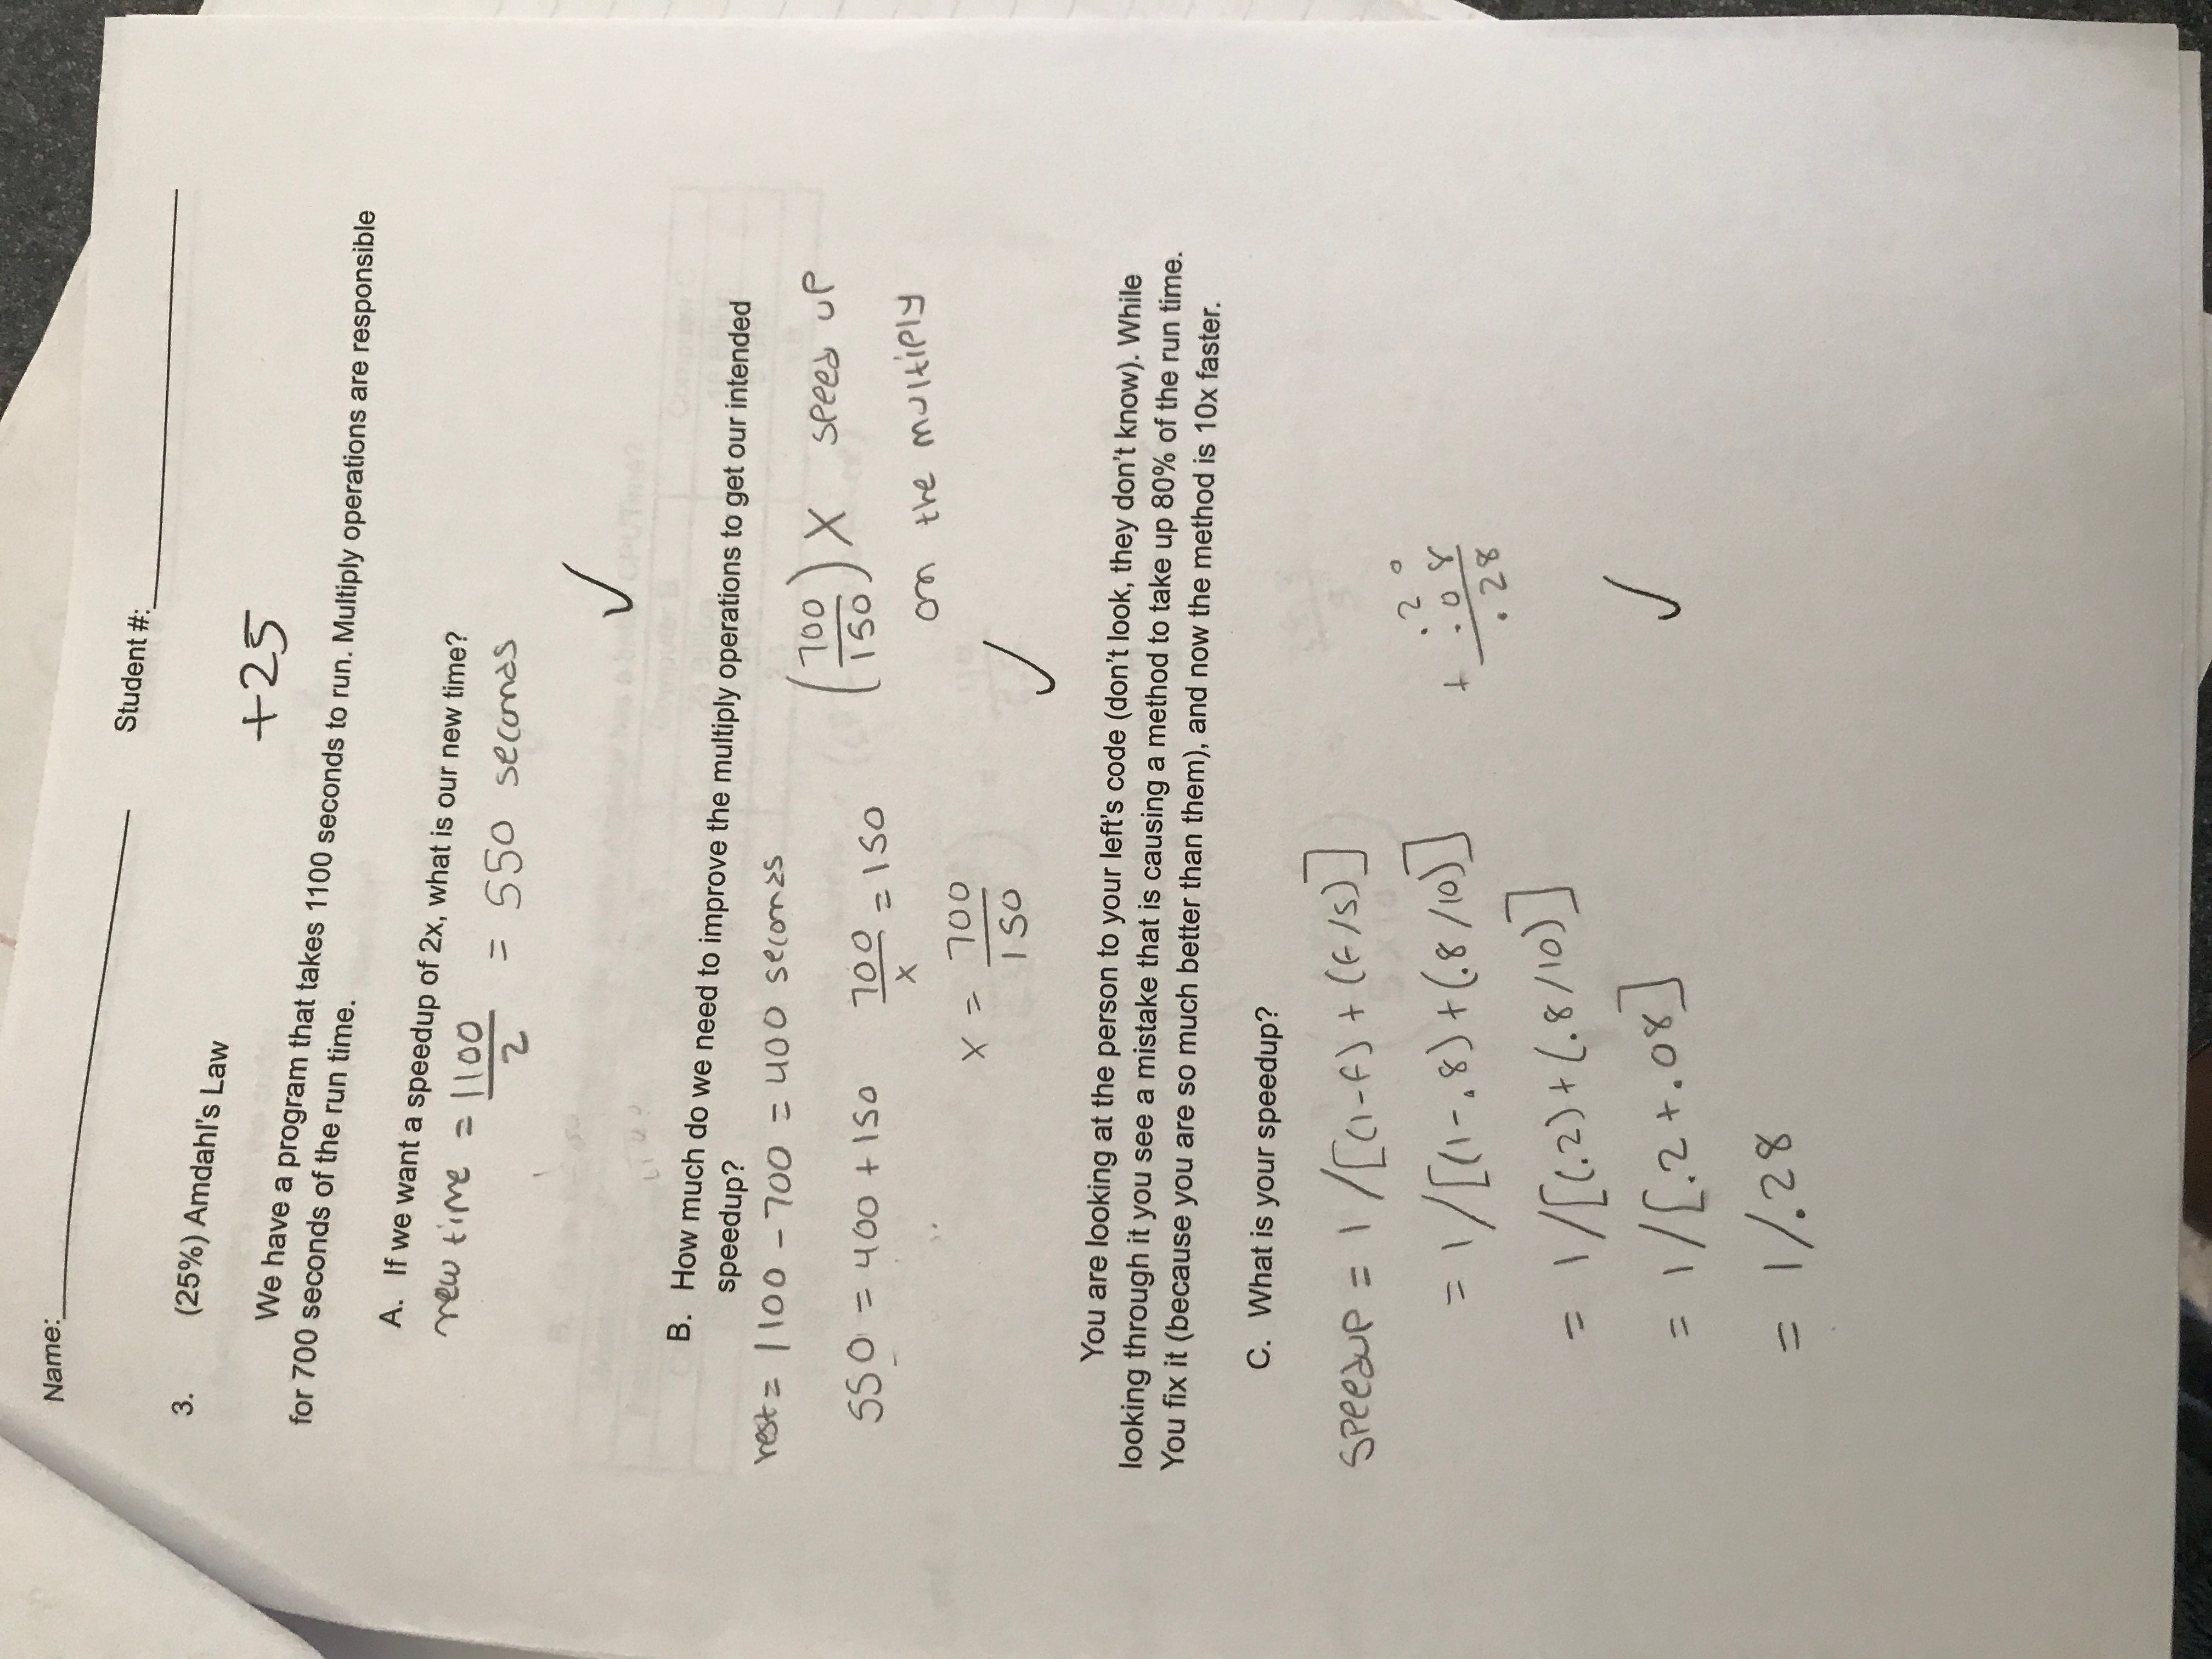 Name:
Student #:
3. (25%) Amdahl's Law
+25
We have a program that takes 1100 seconds to run. Multiply operations are responsible
for 700 seconds of the run time.
A. If we want a speedup of 2x, what is our new time?
new time = 1100/2 = 550 seconds
✓
B. How much do we need to improve the multiply operations to get our intended
speedup?
rest = 1100 - 700 = 400 seconds
550 = 400 + 150 700/x = 150 (700/150) X speed up
on the multiply
x = 700/150
✓
You are looking at the person to your left's code (don't look, they don't know). While
looking through it you see a mistake that is causing a method to take up 80% of the run time.
You fix it (because you are so much better than them), and now the method is 10x faster.
C. What is your speedup?
speedup = 1/[(1-f) + (f/s)]
= 1/[(1-.8)+(.8/10)]
.20
+ .08
.28
= 1/[(.2)+(.8/10)]
= 1/[.2+.08]
✓
= 1/.28